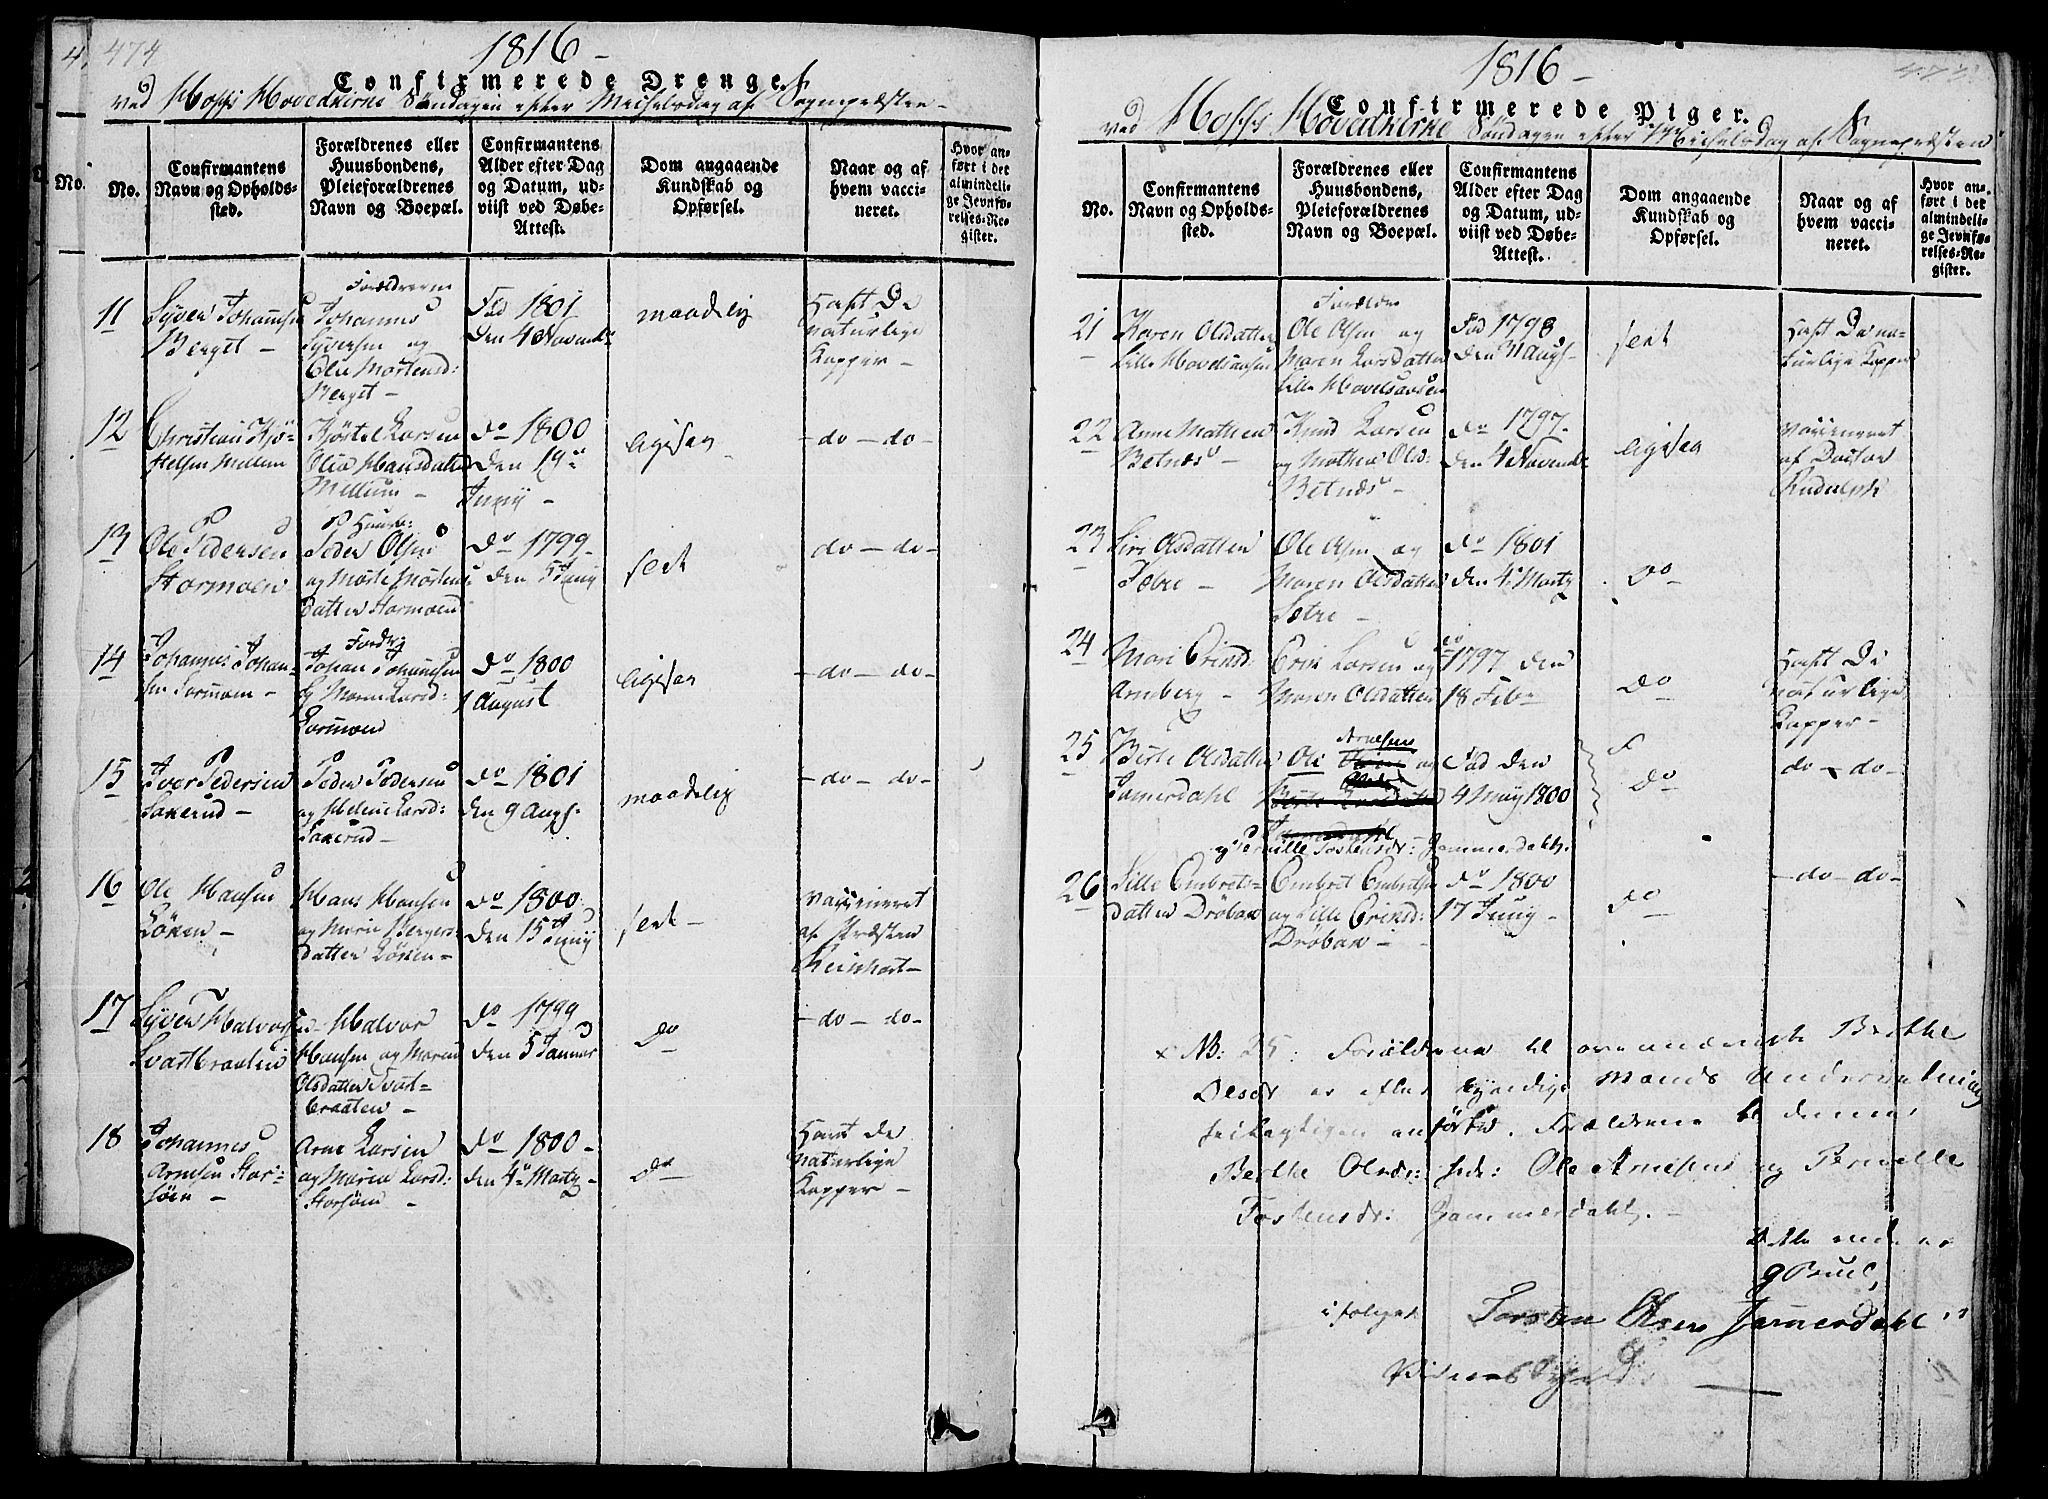 474
1816 –
Confirmerede Drenge.
ved Hofs Hovedkirke Søndagen efter Michelsdag af Sognepræsten –
No.
No.
Confirmantens Navn og Opholds-sted.
Forældrenes eller Huusbondens, Pleieforældrenes Navn og Boepæl.
Confirmantens Alder efter Dag og Datum, ud-viist ved Døbe-Attest.
Dom angaaende Kundskab og Opførsel.
Naar og af hvem vacci-neret.
Hvor an-ført i det almindeli-ge Jevnfø-relses-Re-gister.
11
Syver Johannesen
Berget –
Forældrerne
Johannes
Syversen og
Olia Mortensd:
Berget –
Fød 1801
den 4 Novemb:
maadelig
Haft De
naturlige
Kopper –
12
Christian Kjö-
stelsen Mellem
Kjöstel Larsen
Olia Hansdatter
Mellem –
do 1800
den 19de
Junij –
ligesaa
– do – do –
13
Ole Pedersen
Stormoen
Peder Olsen
og Marte Mortens
datter Stormoen
do 1799
den 5 Junij
slet
do – do –
14
Johannes Johan-
sen Lormoen –
Johan Johannesen
og Maren Larsd:
Lormoen
do 1800
1 August
ligesaa
– do – do –
15
Iver Pedersen
Sakerud –
Peder Pedersen
og Helene Larsd:
Sakerud –
do 1801
den 9 Augs-
maadelig
– do – do –
16
Ole Hansen
Löken –
Hans Hansen
og Marie Bergers-
datter Löken –
do 1800
den 15 Junij
slet –
Vaccineret
af Præsten
Reinhart –
17
Syver Halvorsen
Svartbraaten
Halvor
Hansen og Maria
Olsdatter Svart-
braaten –
do 1799
den 5 Januar
do
– do – do –
18
Johannes
Arnesen Stor-
söen –
Arne Larsen
og Maria Larsd:
Storsöen –
do 1800 –
den 4de Martz –
do
Havt de
naturlige
Kopper –
1816 –
Confirmerede Piger.
ved Hofs Hovedkirke Søndagen efter Michelsdag af Sognepræsten
No.
Confirmantens Navn og Opholds-sted.
Forældrenes eller Huusbondens, Pleieforældrenes Navn og Boepæl.
Confirmantens Alder efter Dag og Datum, ud-viist ved Døbe-Attest.
Dom angaaende Kundskab og Opførsel.
Naar og af hvem vacci-neret.
Hvor an-ført i det almindeli-ge Jevnfø-relses-Re-gister.
21
Karen Olsdatter
Lille Hovelsaasen
Forældre
Ole Olsen og
Maren Larsdatter
Lille Hovelsaasen
Fød 1798
den 31 Augs-
slet
Haft De na-
turlige Kopper
22
Anne Mathea
Betnæs –
Knud Larsen
og Mathea Olsd:
Betnæs –
do 1797
den 4 Novemb:
ligesaa
Vaccineret
af Doctor
Rudolph
23
Siri Olsdatter
Sæbre –
Ole Olsen og
Maren Olsdatter
Sætre –
do 1801
den 4de Martz
do
24
Mari Eriksd:
Arneberg –
Erik Larsen og
Maren Olsdatter
do 1797 den
18 Feb –
do
Haft De
naturlige
Kopper –
25
Berte Olsdatter
Jamerdahl
Arnesen
Ole og
og Pernille Tostensdr: Jammerdahl.
Fød den
4 Maij 1800
do
do – do –
26
Lille Embrets-
datter Dröbak
Embret Embretsen
og Lille Eriksd:
Dröbak –
do 1800
17 Junij –
do
– do – do –
x NB: 25: Forældrene til ovennævnte Berthe
Olsdr er efter kyndige Mænds Underretning
feilagtigen anförte. Forældrene til denne
Berthe Olsdr: hede: Ole Arnesen og Pernille
Tostensdr: Jammerdahl. –
ifolge
Torsten Olsen Jamerdahl